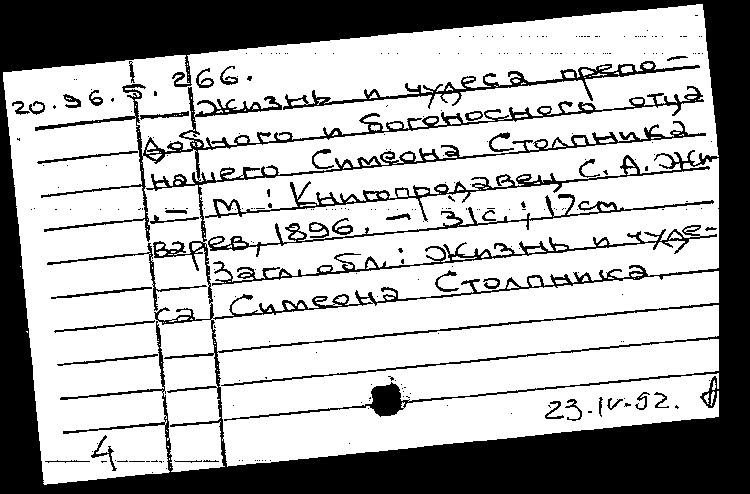 20.96.5.266.
Жизнь и чудеса препо-
добного и богоносного отца
нашего Симеона Столпника
.- М.: Книгопродавец С. А. Жи
варев, 1896. - 31с.; 17см.
Загл. обл.: Жизнь и чуде-
са Симеона Столпника.
23.IV.92.
4